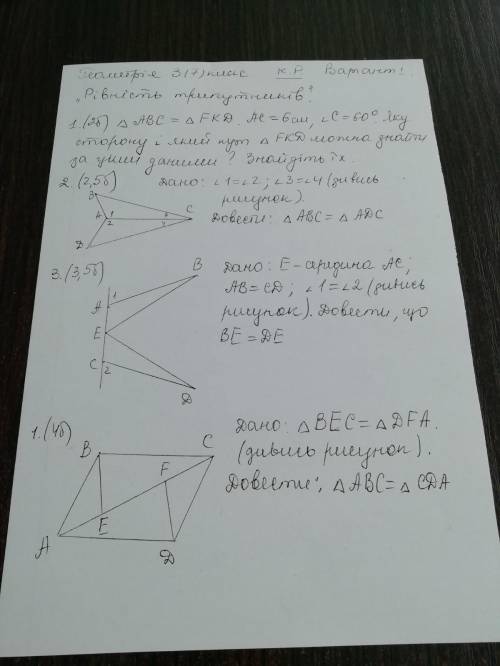 Геометрія 3(7) клас К.Р. Варіант 1.
„Рівність трикутників"
1.(2б) △ABC = △FKD. AC = 6см, ∠C = 60°. Яку
сторону і який кут △FKD можна знайти
за цими даними? Знайдіть їх.
2.(2,5б) Дано: ∠1=∠2; ∠3=∠4 (дивись
рисунок).
Довести: △ABC = △ADC
B
A 1
2
3
4
C
D
3.(3,5б) Дано: E - середина AC;
AB = CD; ∠1=∠2 (дивись
рисунок). Довести, що
BE = DE
B
A 1
E
C 2
D
1.(4б) Дано: △BEC = △DFA.
(дивись рисунок).
Довести: △ABC = △CDA
B C
F
E
A D